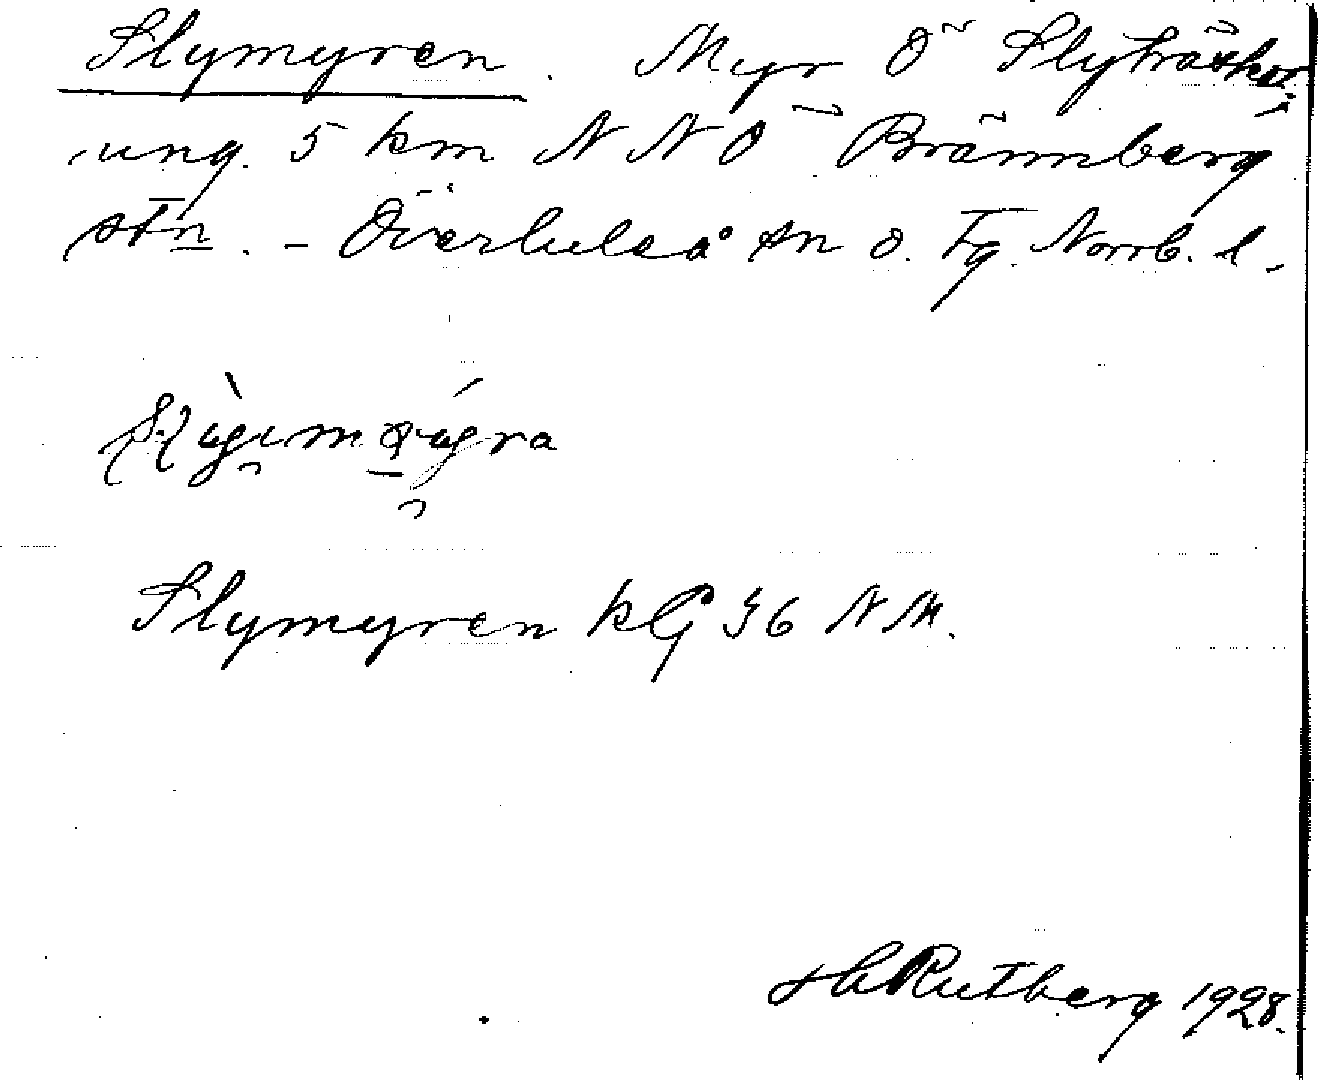 Slymyren. Myr Ö Slyträsket,
ung. 5 km NNÖ Brännberg
stn. - Överluleå sn o. Tg. Norrb. l.
Slymyren kG 36 NM.
H Rutberg 1928.